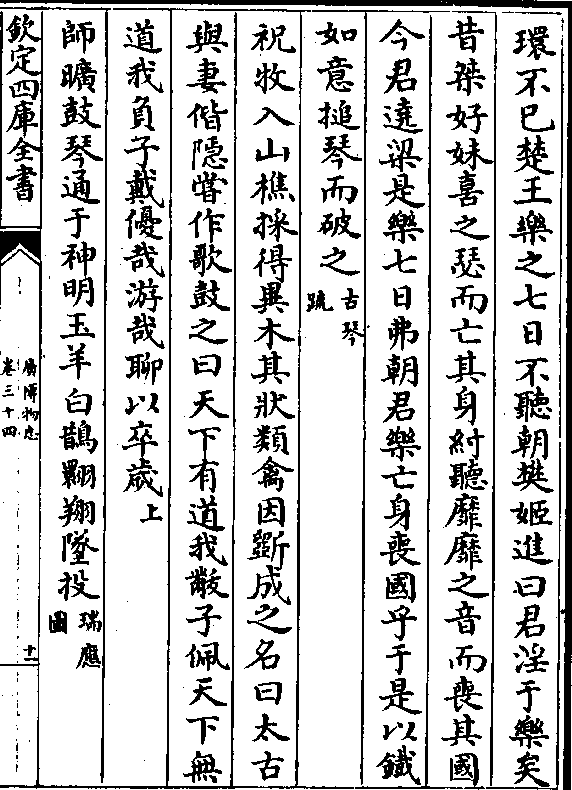 環不已楚王樂之七日不聽朝樊姬進曰君淫于樂矣
昔桀好妹喜之瑟而亡其身紂聽靡靡之音而喪其國
今君遶梁是樂七日弗朝君樂亡身喪國乎于是以鐵
如意搥琴而破之古琴疏
祝牧入山樵採得異木其狀類禽因斵成之名曰太古
與妻偕隱嘗作歌鼓之曰天下有道我黻子佩天下無
道我負子戴優哉游哉聊以卒歲上
師曠鼓琴通于神明玉羊白鵲翾翔墜投瑞應圖
欽定四庫全書
廣博物志
卷三十四
十一